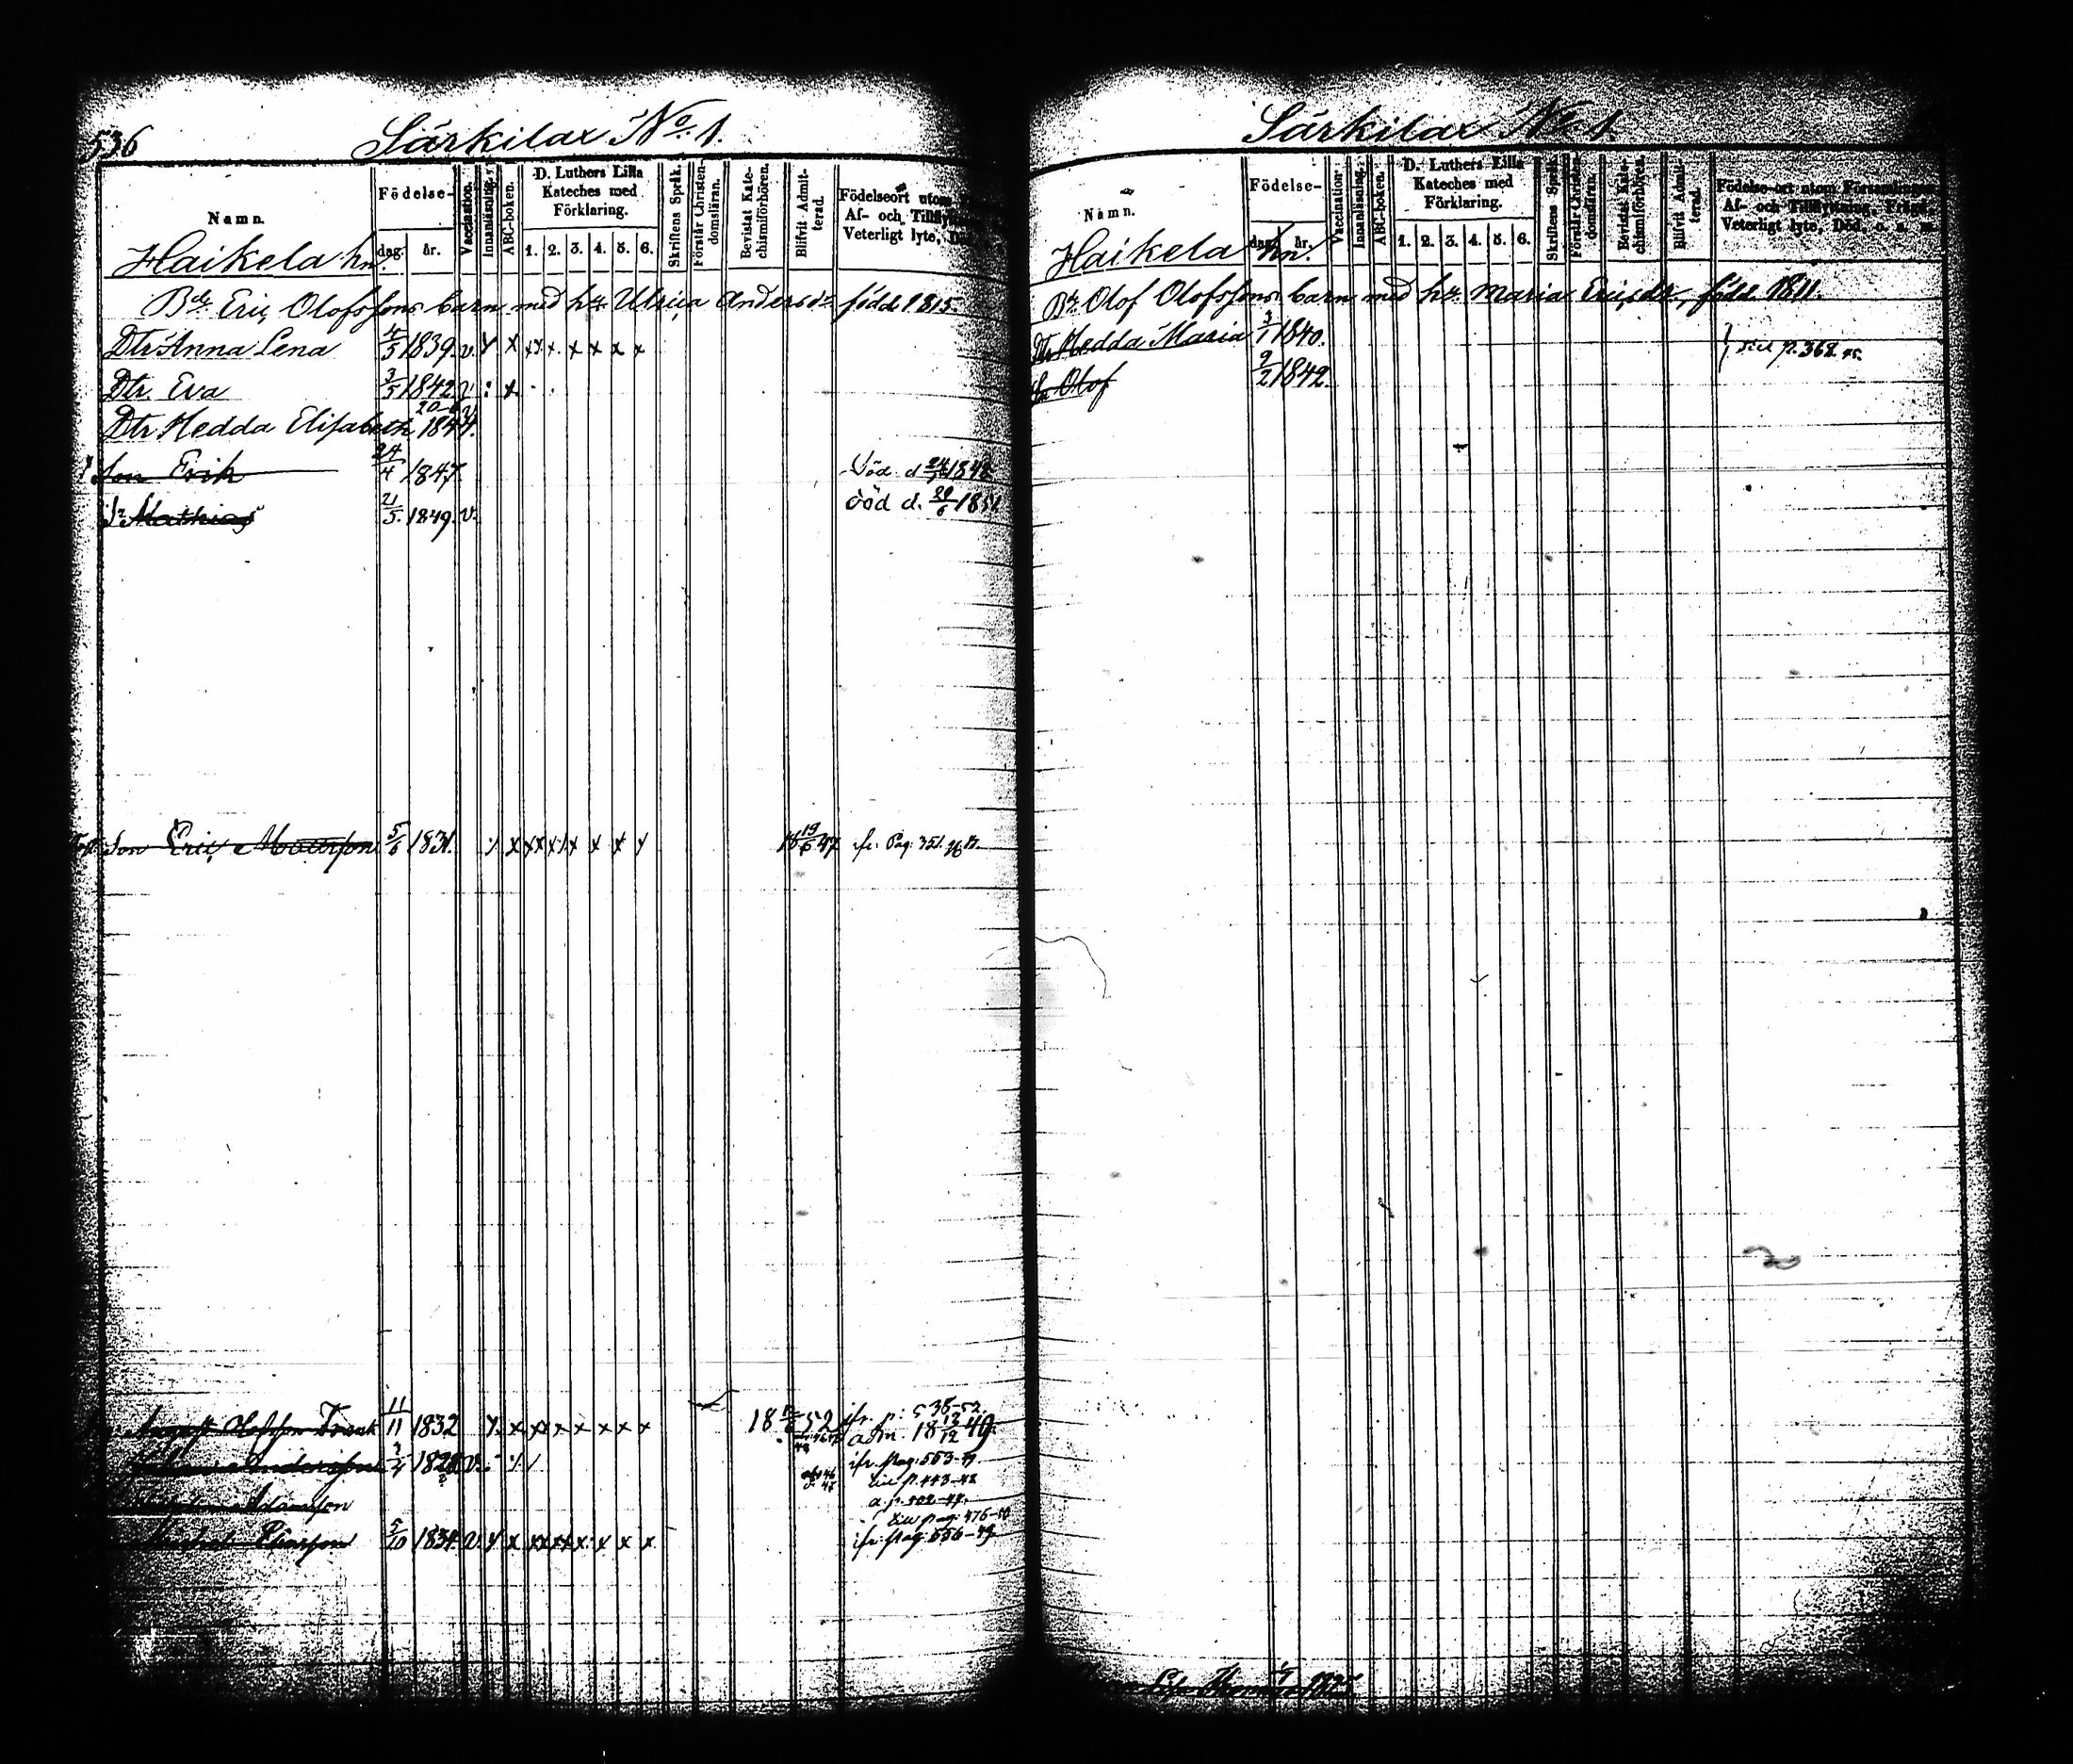 536
Särkilax No 1.
Namn.
Födelse-
dag.
år.
Vaccination.
Innanläsning.
ABC-boken.
D. Luthers Lilla
Kateches med
Förklaring.
1. 2. 3. 4. 5. 6.
Skriftens Språk.
Förstår Christen-
domsläran.
Bevistat Kate-
chismiförhören.
Blifvit Admit-
terad.
Födelseort utom
Af- och Tillflytt
Veterligt lyte, Dö
Haikela hn.
Bde Eric Olofssons barn med hu Ulrica Andersdr född 1815.
Dtr Anna Lena 4/5 1839. v. x x x x x x x x x
Dtr. Eva 3/5 1842 v : x
Dtr Hedda Elisabeth 20-6 1844. v.
Son Erik 24/4 1847. Död. d 24/ 1848
Sn Mathias 21/5. 1849. v. död d. 20/6 1851
Son Eric 5/6 1831. x x x x x x x x x 18 19/6 47 ifr. Pag. 351.
August Olofsson 11/11 1832 x x x x x x x x 18 52 ifr. p: 535-52.
adm. 18 13/12 49.
Andersson v. ifr. pag: 553-
till p. 443-48
a. p. 502-47.
Adamsson
till pag: 476-50
5/10 1834 v. x x x x x x x x x ifr. pag: 556-49
Särkilax No 1.
Namn.
Födelse-
dag.
år.
Vaccination.
Innanläsning.
ABC-boken.
D. Luthers Lilla
Kateches med
Förklaring.
1. 2. 3. 4. 5. 6.
Skriftens Språk.
Förstår Christen-
domsläran.
Bevistat Kate-
chismiförhören.
Blifvit Admit-
terad.
Födelse-ort utom Församlingen
Af- och Tillflyttning, Fräjd,
Veterligt lyte, Död, o. s. v.
Haikela hn.
Bde Olof Olofssons barn med hu Maria Ericsdr, född 1811.
Dtr Hedda Maria 3/1 1840.
} till p. 368.
Sn Olof 9/2 1842.